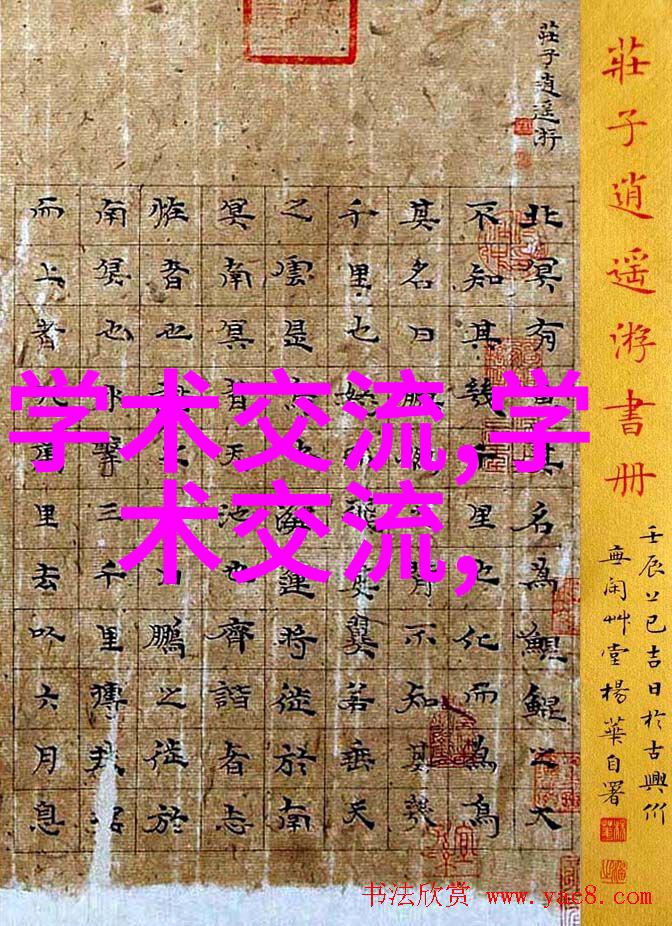 莊子逍遥游書册
壬辰上巳吉日於古興竹
亜閑艸堂楊華自署
莊子逍遥游
北冥有其名為鯤鯤之大
不知其幾里也化而為鳥
其名曰鵬背不知其幾
千里也怒飛其翼若垂天
之雲是海運將徙於南
冥南冥者天池也齊諧者志
恠者也鵬之徙於
南冥也水擊三千里摶扶搖
而上者九萬里去以六月息
学术交流,学
术交流,
书法欣赏 www.yac8.com